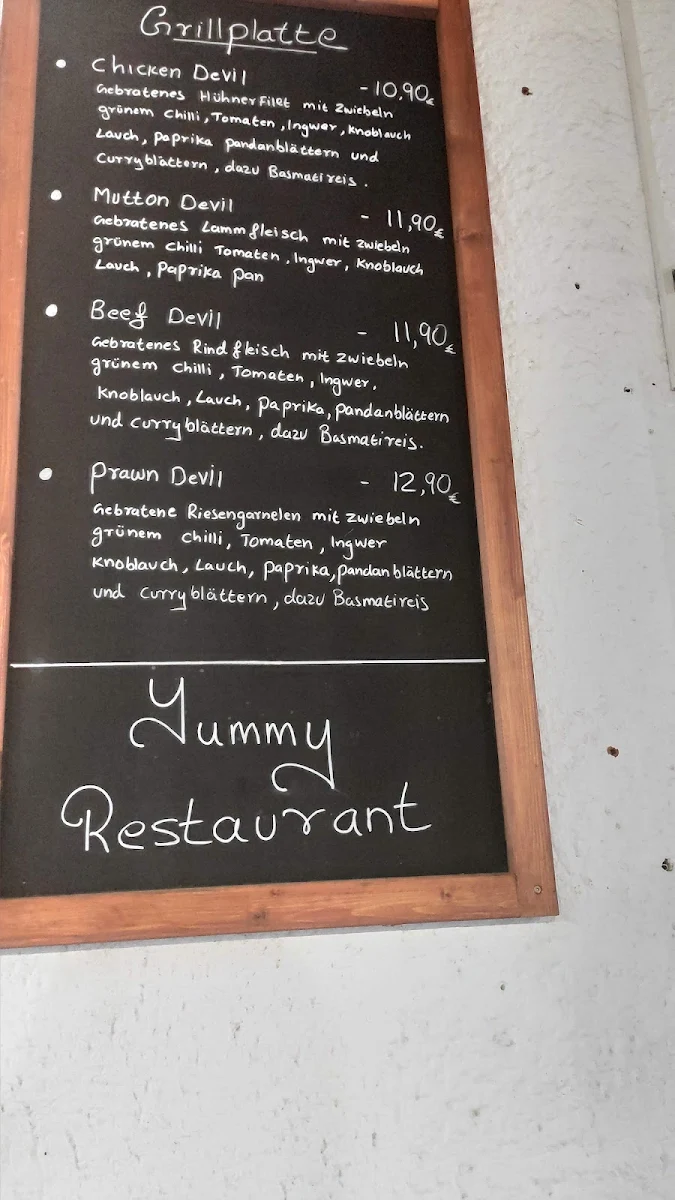 Grillplatte
• Chicken Devil - 10,90€
Gebratenes HühnerFilet mit Zwiebeln
grünem Chilli, Tomaten, Ingwer, Knoblauch
Lauch, Paprika pandanblättern und
Curryblättern, dazu Basmatireis.
• Mutton Devil - 11,90€
Gebratenes Lammfleisch mit zwiebeln
grünem chilli Tomaten, Ingwer, Knoblauch
Lauch, Paprika Pan
• Beef Devil - 11,90€
Gebratenes Rindfleisch mit zwiebeln
grünem chilli, Tomaten, Ingwer,
Knoblauch, Lauch, Paprika, pandanblättern
und curryblättern, dazu Basmatireis.
• Prawn Devil - 12,90€
Gebratene Riesengarnelen mit zwiebeln
grünem chilli, Tomaten, Ingwer
Knoblauch, Lauch, Paprika, pandanblättern
und curryblättern, dazu Basmatireis
Yummy
Restaurant